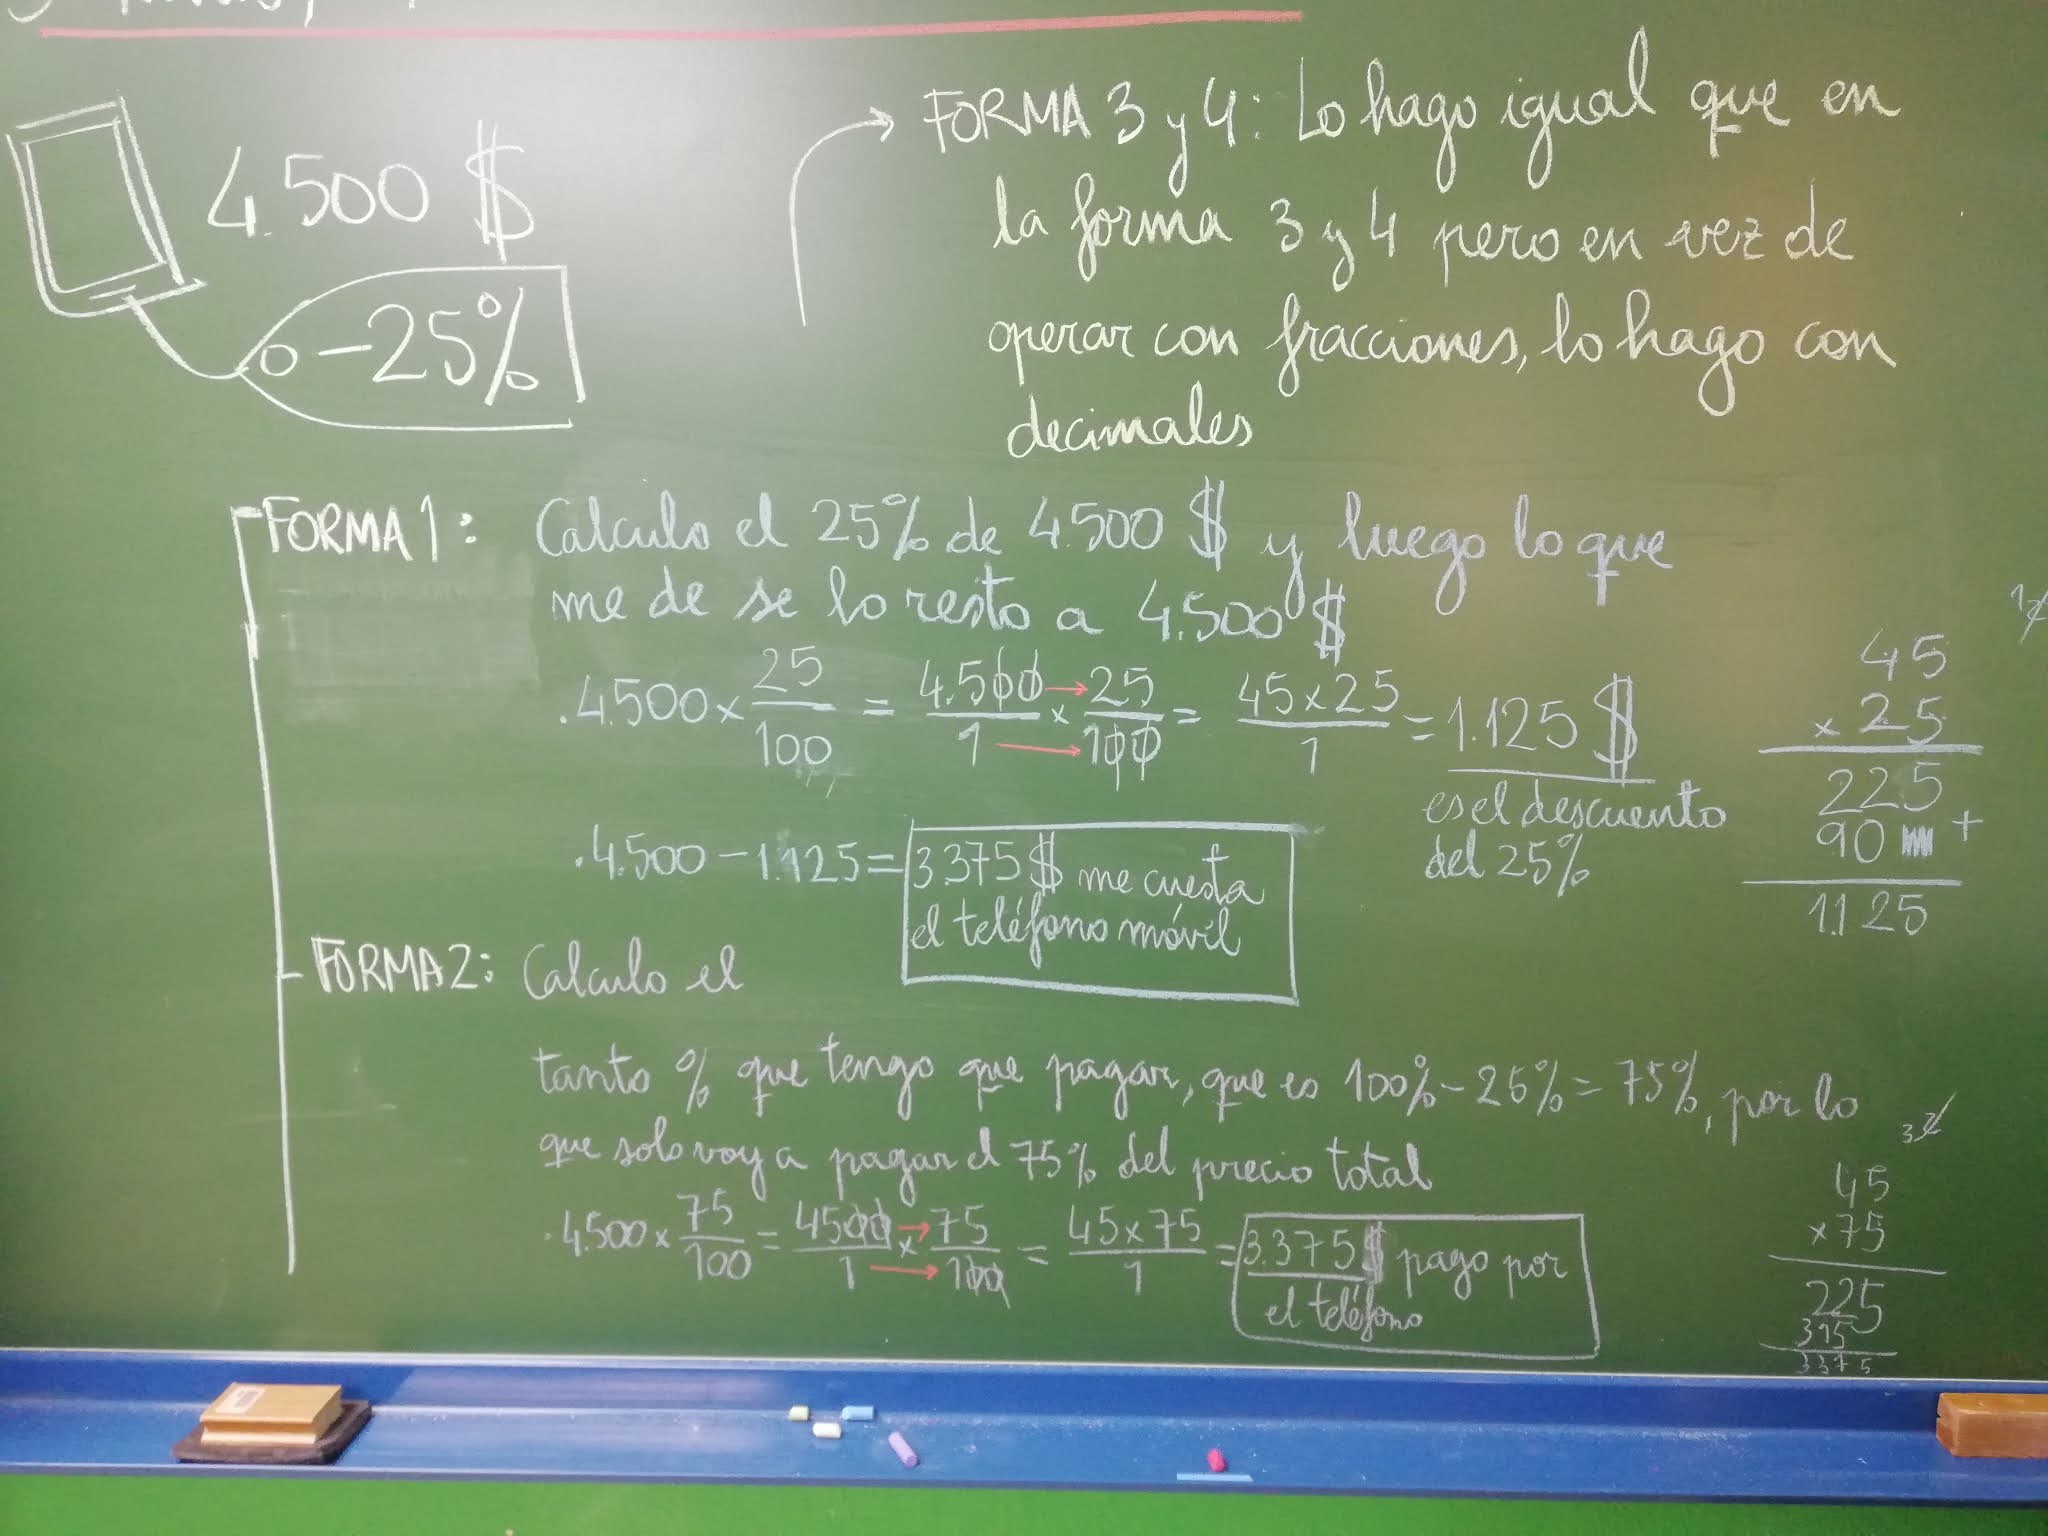 4.500 $
-25%
FORMA 3 y 4: Lo hago igual que en
la forma 3 y 4 pero en vez de
operar con fracciones, lo hago con
decimales
FORMA 1: Calculo el 25% de 4.500 $ y luego lo que
me de se lo resto a 4.500 $
. 4.500 x 25/100 = 4.500/1 x 25/100 = 45 x 25/1 = 1.125 $
es el descuento
del 25%
. 4.500 - 1.125 = 3.375 $ me cuesta
el teléfono móvil
45
x 25
225
90 +
1.125
FORMA 2: Calculo el
tanto % que tengo que pagar, que es 100% - 25% = 75%, por lo
que solo voy a pagar el 75% del precio total
. 4.500 x 75/100 = 4500/1 x 75/100 = 45 x 75/1 = 3.375 $ pago por
el teléfono
45
x 75
225
315
3375